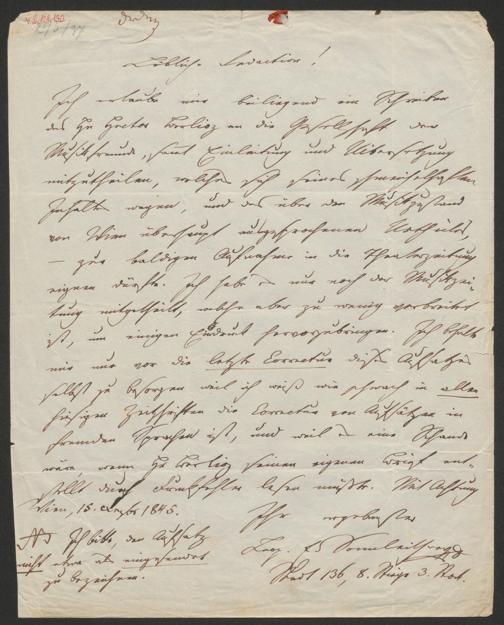 Löbliche Redaction!
Ich erlaube mir beiliegend ein Schreiben
des Hr Hector Berlioz an die Gesellschaft der
Musikfreunde, samt Einleitung und Uebersetzung
mitzutheilen, welches sich seines schmeichelhaften
Inhaltes wegen, und des über den Musikzustand
von Wien überhaupt ausgesprochenen Urtheiles,
– zur baldigen Aufnahme in die Theaterzeitung
eignen dürfte. Ich habe es nur noch der Musikzei-
tung mitgetheilt, welche aber zu wenig verbreitet
ist, um einigen Eindruck hervorzubringen. Ich behalte
mir nur vor die letzte Correctur dieses Aufsatzes
selbst zu besorgen weil ich weiß wie schwach in allen
hiesigen Zeitschriften die Correctur von Aufsätzen in
fremden Sprachen ist, und weil es eine Schande
wäre wenn Hr Berlioz seinen eigenen Brief ent-
stellt durch Druckfehler lesen müßte. Mit Achtung
Wien, 15. Dezbr 1845.
Ihr ergebenster
NB Ich bitte, den Aufsatz
nicht etwa als eingesendet
zu bezeichnen.
Sonnleithner
Stadt 136, 8. Stiege 3. Stock.